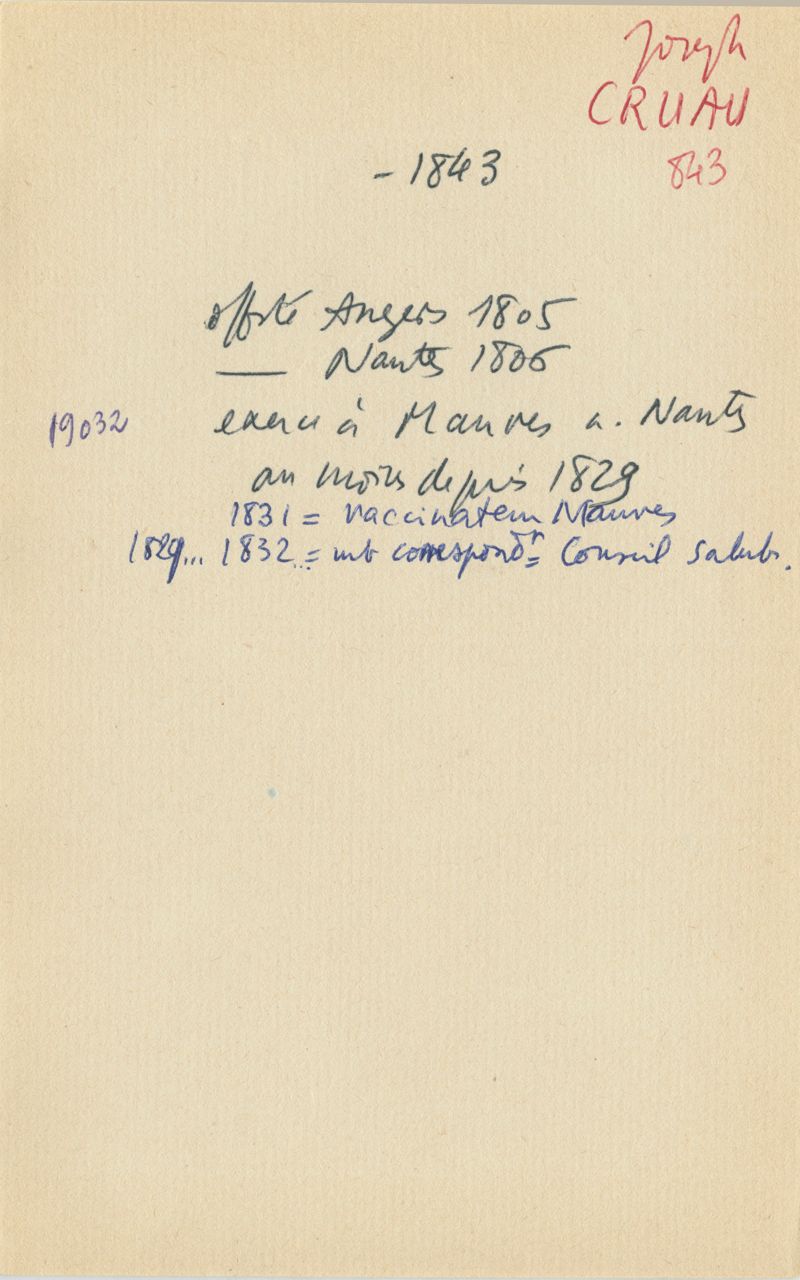 Joseph
CRUAU
- 1843
843
offté Angers 1805
— Nantes 1806
19032 exerce à Mauves a. Nantes
au moins depuis 1829
1831 = vaccinateur Mauves
1829... 1832... = mb correspondt = Conseil salub.